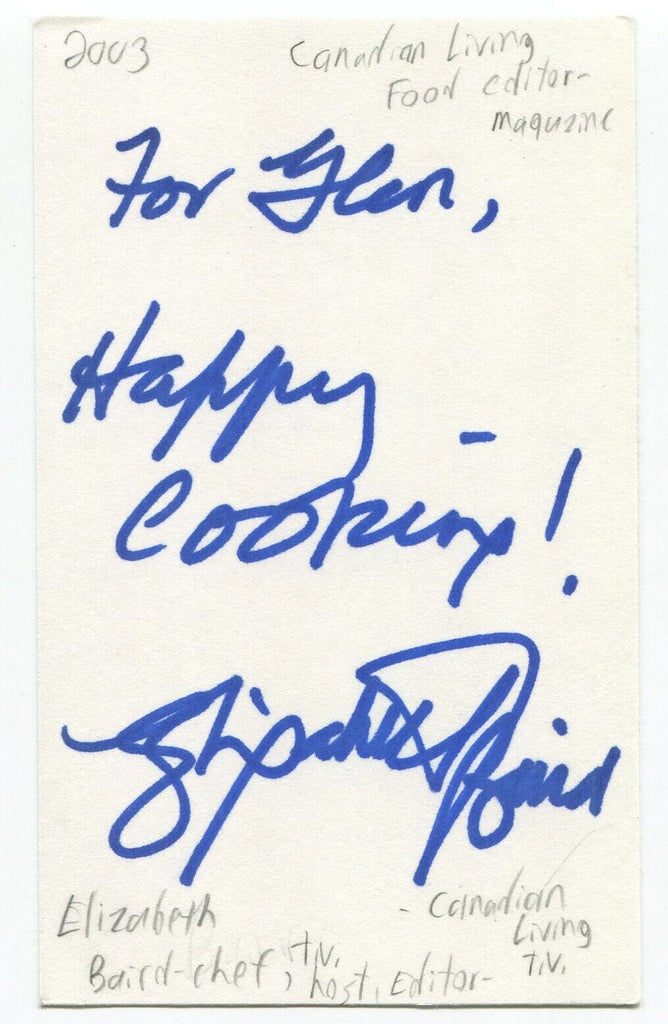 2003
Canadian Living
Food editor-
magazine
For Glen,
Happy
Cooking!
Elizabeth Baird
Elizabeth
Baird-chef, t.v. host, Editor-
- Canadian
Living
T.V.